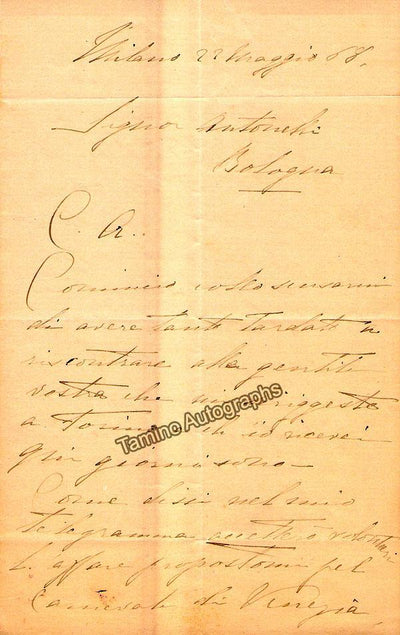 Milano 22 Maggio 68.
Signor Antonelli
Bologna
C. A.
Comincio collo scusarmi
di avere tanto tardato a
riscontrare alla gentile
vostra che
a Torino io ricevei
qui giorni sono
Come dissi nel mio
telegramma accetterò volentieri
l'affare propostomi pel
Carnevale di Venezia
Tamino Autographs.